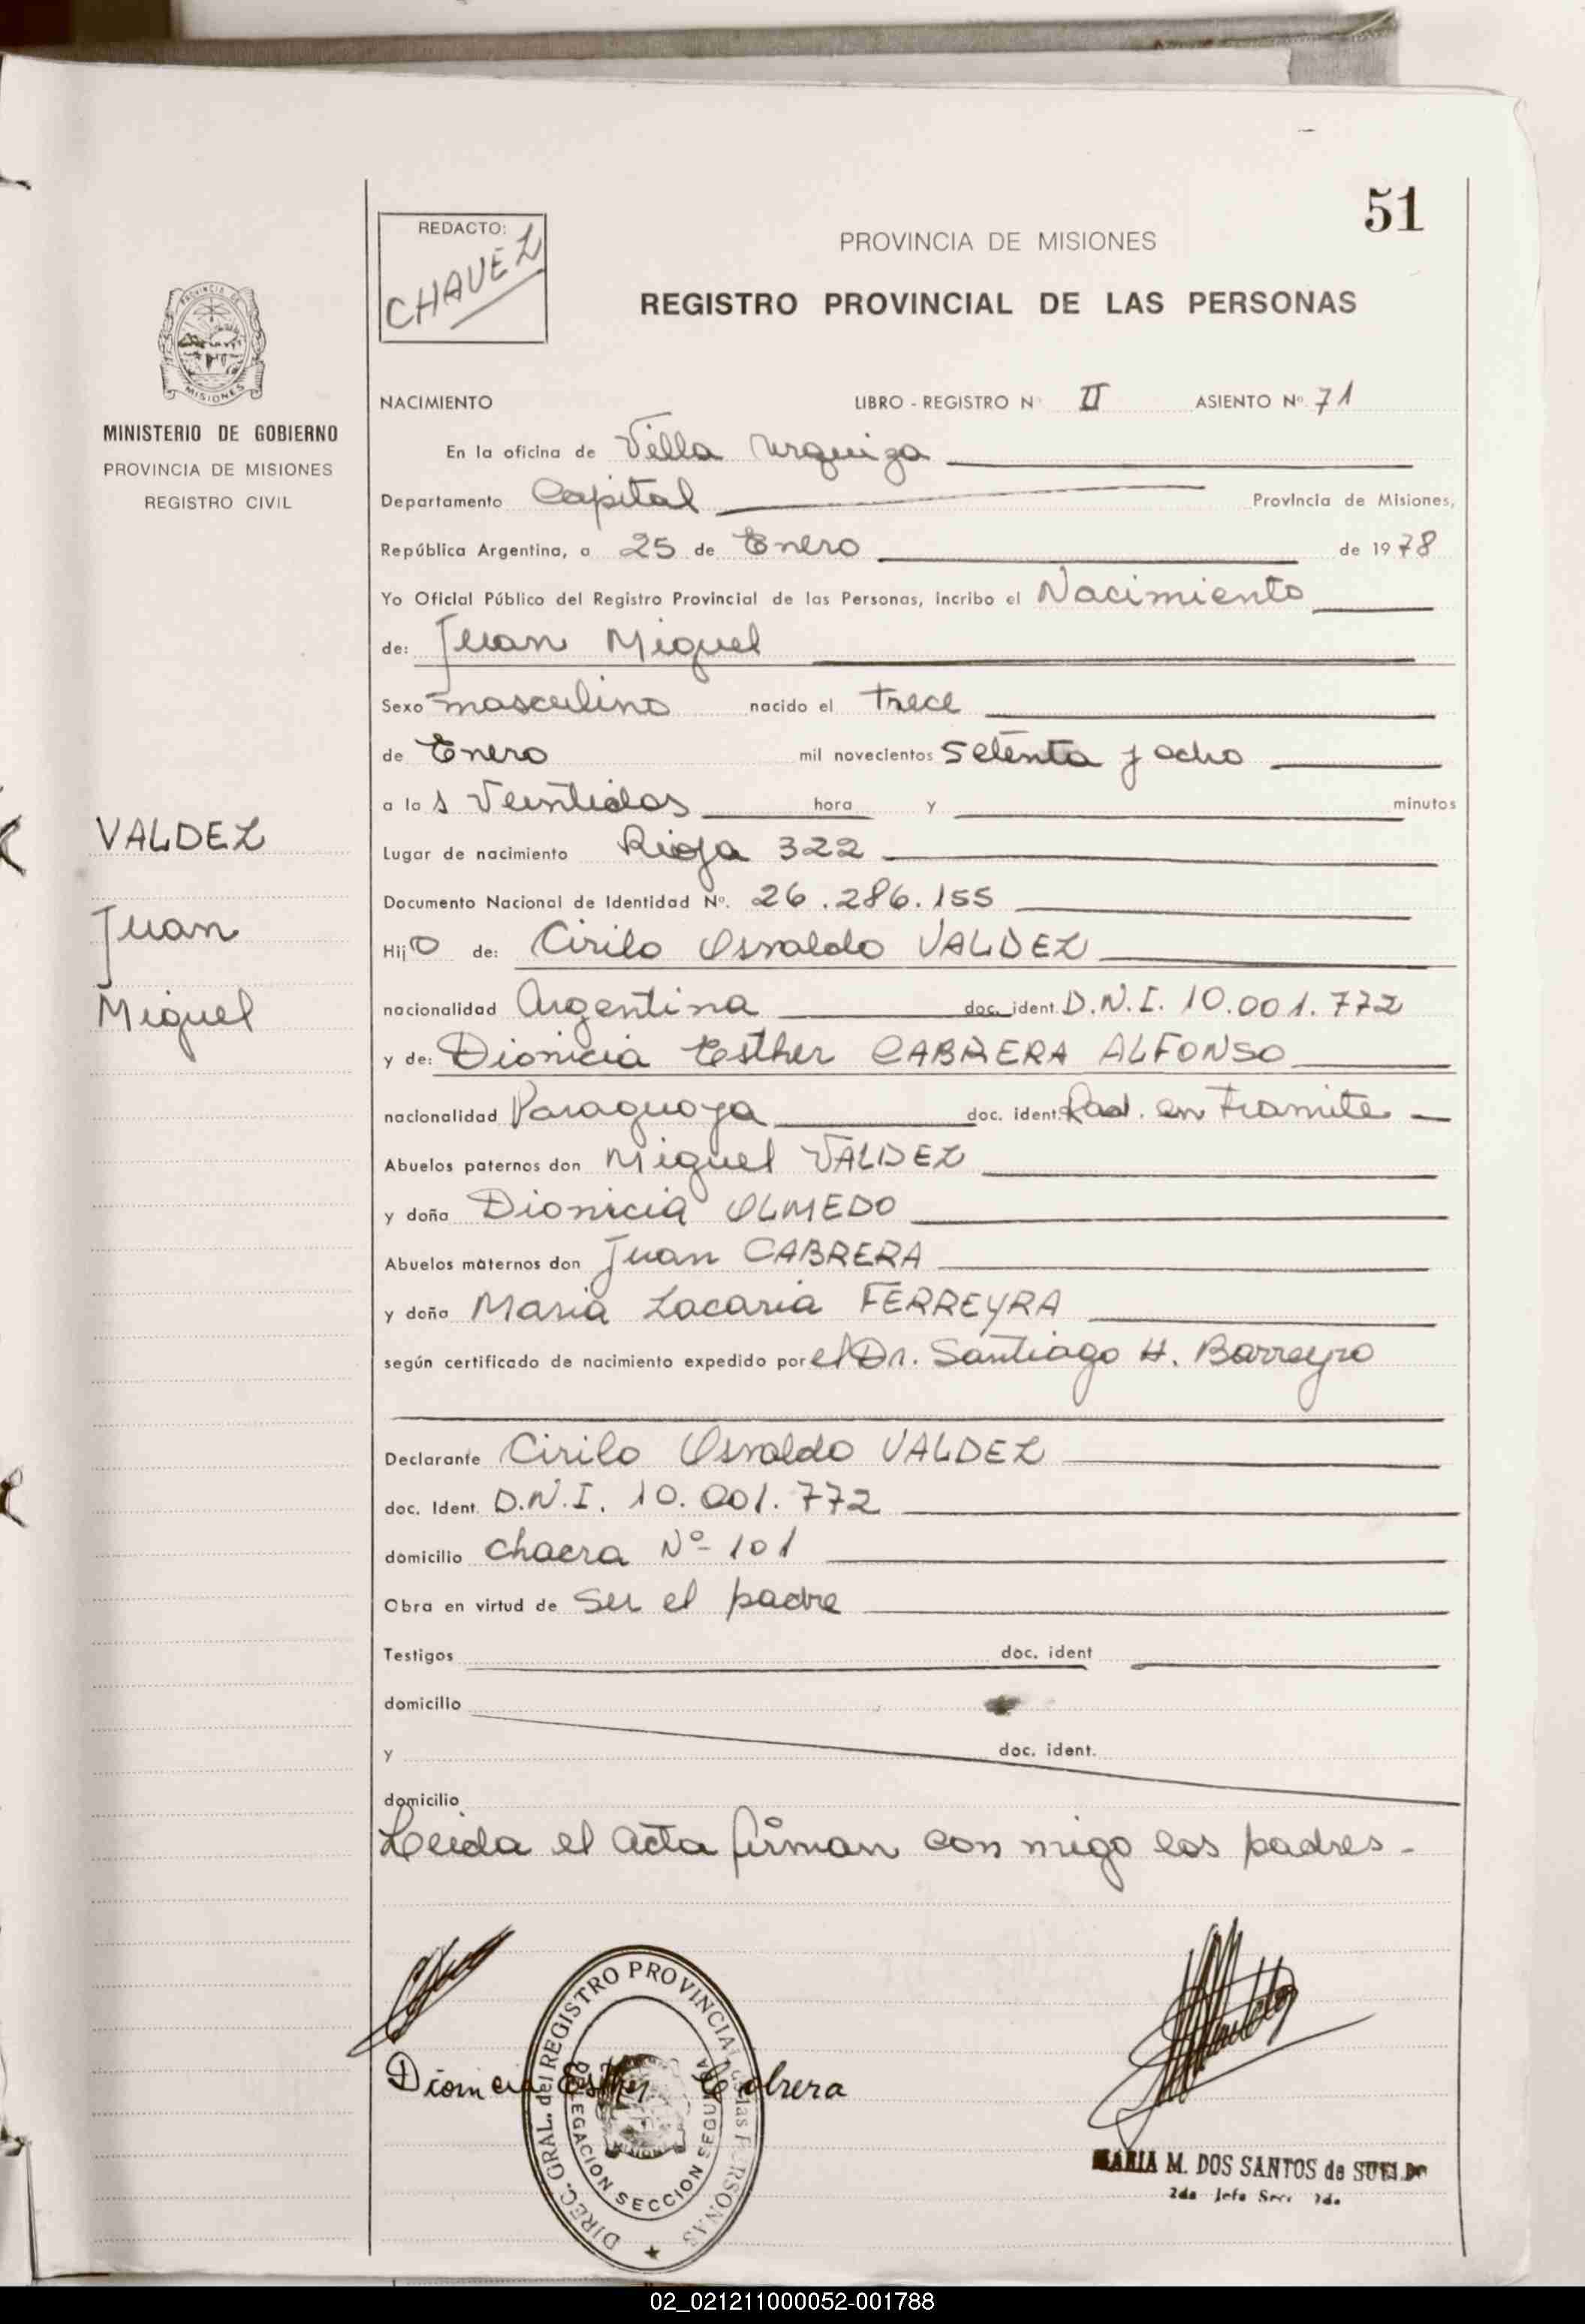 51
REDACTO:
CHAVEZ
PROVINCIA DE MISIONES
REGISTRO PROVINCIAL DE LAS PERSONAS
PROVINCIA DE
MISIONES
MINISTERIO DE GOBIERNO
PROVINCIA DE MISIONES
REGISTRO CIVIL
VALDEZ
Juan
Miguel
NACIMIENTO LIBRO - REGISTRO Nº II ASIENTO Nº 71
En la oficina de Villa Urquiza
Departamento Capital Provincia de Misiones,
República Argentina, a 25 de Enero de 1978
Yo Oficial Público del Registro Provincial de las Personas, incribo el Nacimiento
de: Juan Miguel
Sexo masculino nacido el trece
de Enero mil novecientos setenta y ocho
a las Veintidos hora y minutos
Lugar de nacimiento Rioja 322
Documento Nacional de Identidad Nº. 26.286.155
Hijo de: Cirilo Osvaldo VALDEZ
nacionalidad Argentina doc. ident. D.N.I. 10.001.772
y de: Dionicia Esther CABRERA ALFONSO
nacionalidad Paraguaya doc. ident. Rad. en Tramite
Abuelos paternos don Miguel VALDEZ
y doña Dionicia OLMEDO
Abuelos maternos don Juan CABRERA
y doña Maria Zacaria FERREYRA
según certificado de nacimiento expedido por el Dr. Santiago H. Barreyro
Declarante Cirilo Osvaldo VALDEZ
doc. Ident. D.N.I. 10.001.772
domicilio Chacra Nº 101
Obra en virtud de ser el padre
Testigos doc. ident
domicilio
y doc. ident.
domicilio
Leida el acta firman con migo los padres.
Dionicia Esther Cabrera
DIREC. GRAL. del REGISTRO PROVINCIAL de las PERSONAS
DELEGACION SECCION SEGUNDA
MARIA M. DOS SANTOS de SUELDO
2da Jefa Secc 2da
02_021211000052-001788